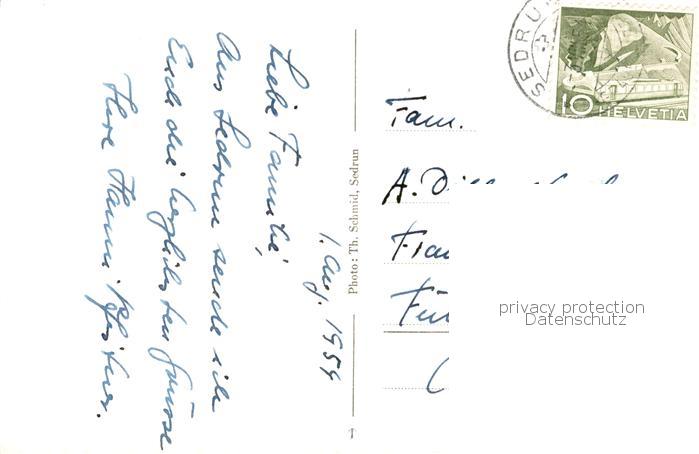 1. Aug. 1954
Liebe Familie,
Aus Sedrun sende ich
Euch die herzlichsten Grüsse
Ihre Hanni Pfister.
Photo: Th. Schmid, Sedrun
SEDRU
10 HELVETIA
Fam.
A.
privacy protection
Datenschutz